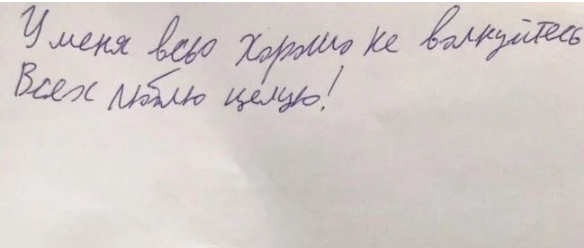 У меня всьо хорошо не волнуйтесь
Всех люблю целую!